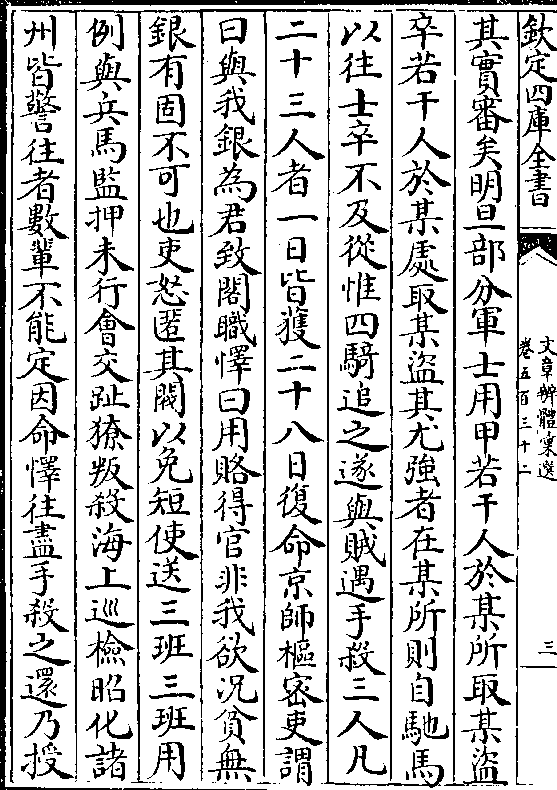 欽定四庫全書
文章辨體彚選
卷五百三十二
三
其實審矣明旦部分軍士用甲若干人於某所取某盜
卒若干人於某處取某盜其尤強者在某所則自馳馬
以往士卒不及從惟四騎追之遂與賊遇手殺三人凡
二十三人者一日皆獲二十八日復命京師樞密吏謂
曰與我銀為君致閤職懌曰用賂得官非我欲況貧無
銀有固不可也吏怒匿其閥以免短使送三班三班用
例與兵馬監押未行會交趾獠叛殺海上巡檢昭化諸
州皆警往者數輩不能定因命懌往盡手殺之還乃授